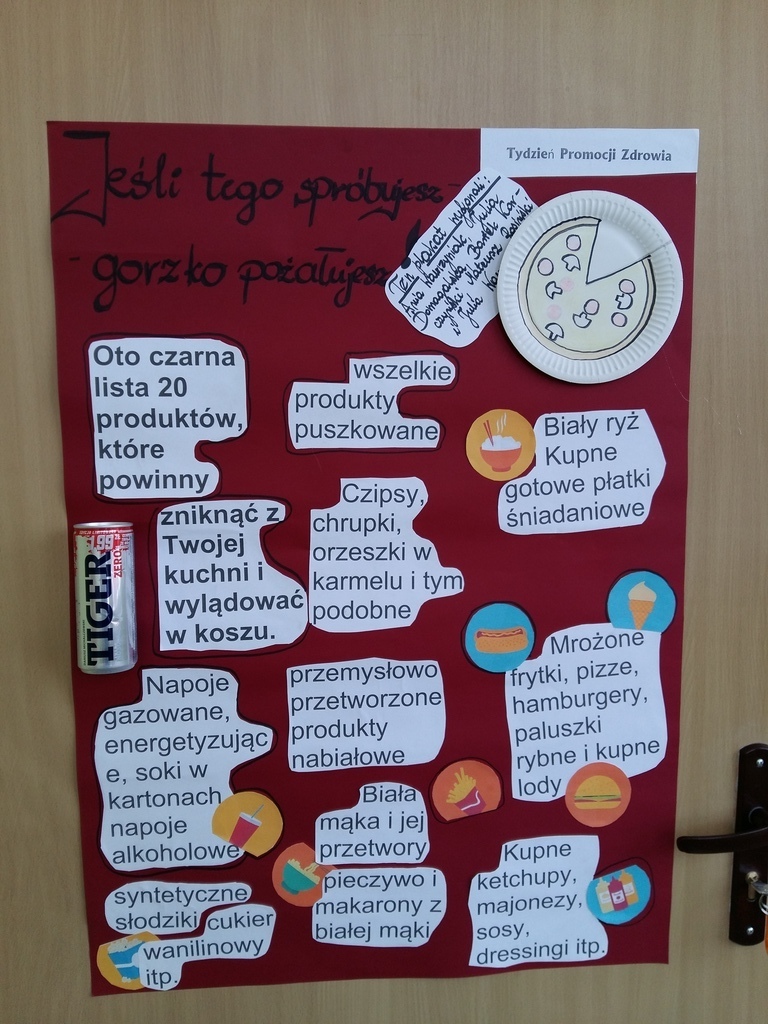 Jeśli tego spróbujesz -
- gorzko pożałujesz!
Tydzień Promocji Zdrowia
Ten plakat wykonali:
Oto czarna
lista 20
produktów,
które
powinny
zniknąć z
Twojej
kuchni i
wylądować
w koszu.
wszelkie
produkty
puszkowane
Biały ryż
Kupne
gotowe płatki
śniadaniowe
Czipsy,
chrupki,
orzeszki w
karmelu i tym
podobne
1.99
TIGER
ZERO
Napoje
gazowane,
energetyzując
e, soki w
kartonach
napoje
alkoholowe
przemysłowo
przetworzone
produkty
nabiałowe
Mrożone
frytki, pizze,
hamburgery,
paluszki
rybne i kupne
lody
Biała
mąka i jej
przetwory
pieczywo i
makarony z
białej mąki
Kupne
ketchupy,
majonezy,
sosy,
dressingi itp.
syntetyczne
słodziki cukier
wanilinowy
itp.